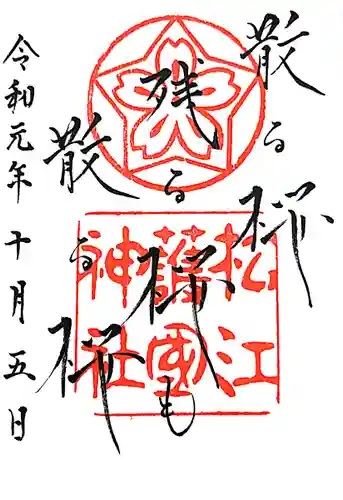 散る桜
残る桜も
散る桜
令和元年十月五日
松江
護國
神社